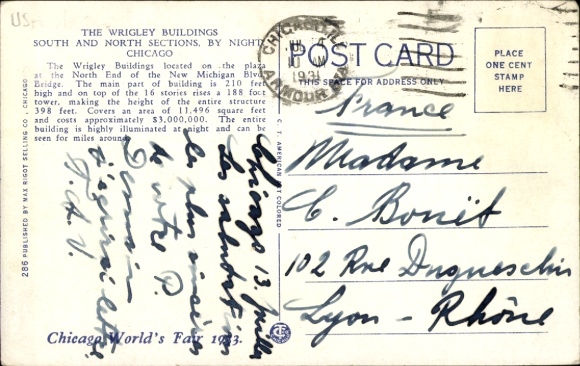 US
THE WRIGLEY BUILDINGS
SOUTH AND NORTH SECTIONS, BY NIGHT
CHICAGO
The Wrigley Buildings located on the plaza
at the North End of the New Michigan Blvd.
Bridge. The main part of building is 210 feet
high and on top of the 16 stories rises a 188 foot
tower, making the height of the entire structure
398 feet. Covers an area of 11,496 square feet
and costs approximately $3,000,000. The entire
building is highly illuminated at night and can be
seen for miles around.
286 PUBLISHED BY MAX RIGOT SELLING CO., CHICAGO
Chicago 13 juillet
Les salutations
les plus sincères
de votre P.
Demain
J.A.V.
Chicago World's Fair 1933.
C. T. AMERICAN ART COLORED
CHICAGO, ILL.
10 AM
1931
ARMOUR STA.
POST CARD
THIS SPACE FOR ADDRESS ONLY
PLACE
ONE CENT
STAMP
HERE
France
Madame
C. Bonit
102 Rue Duguesclin
Lyon - Rhône